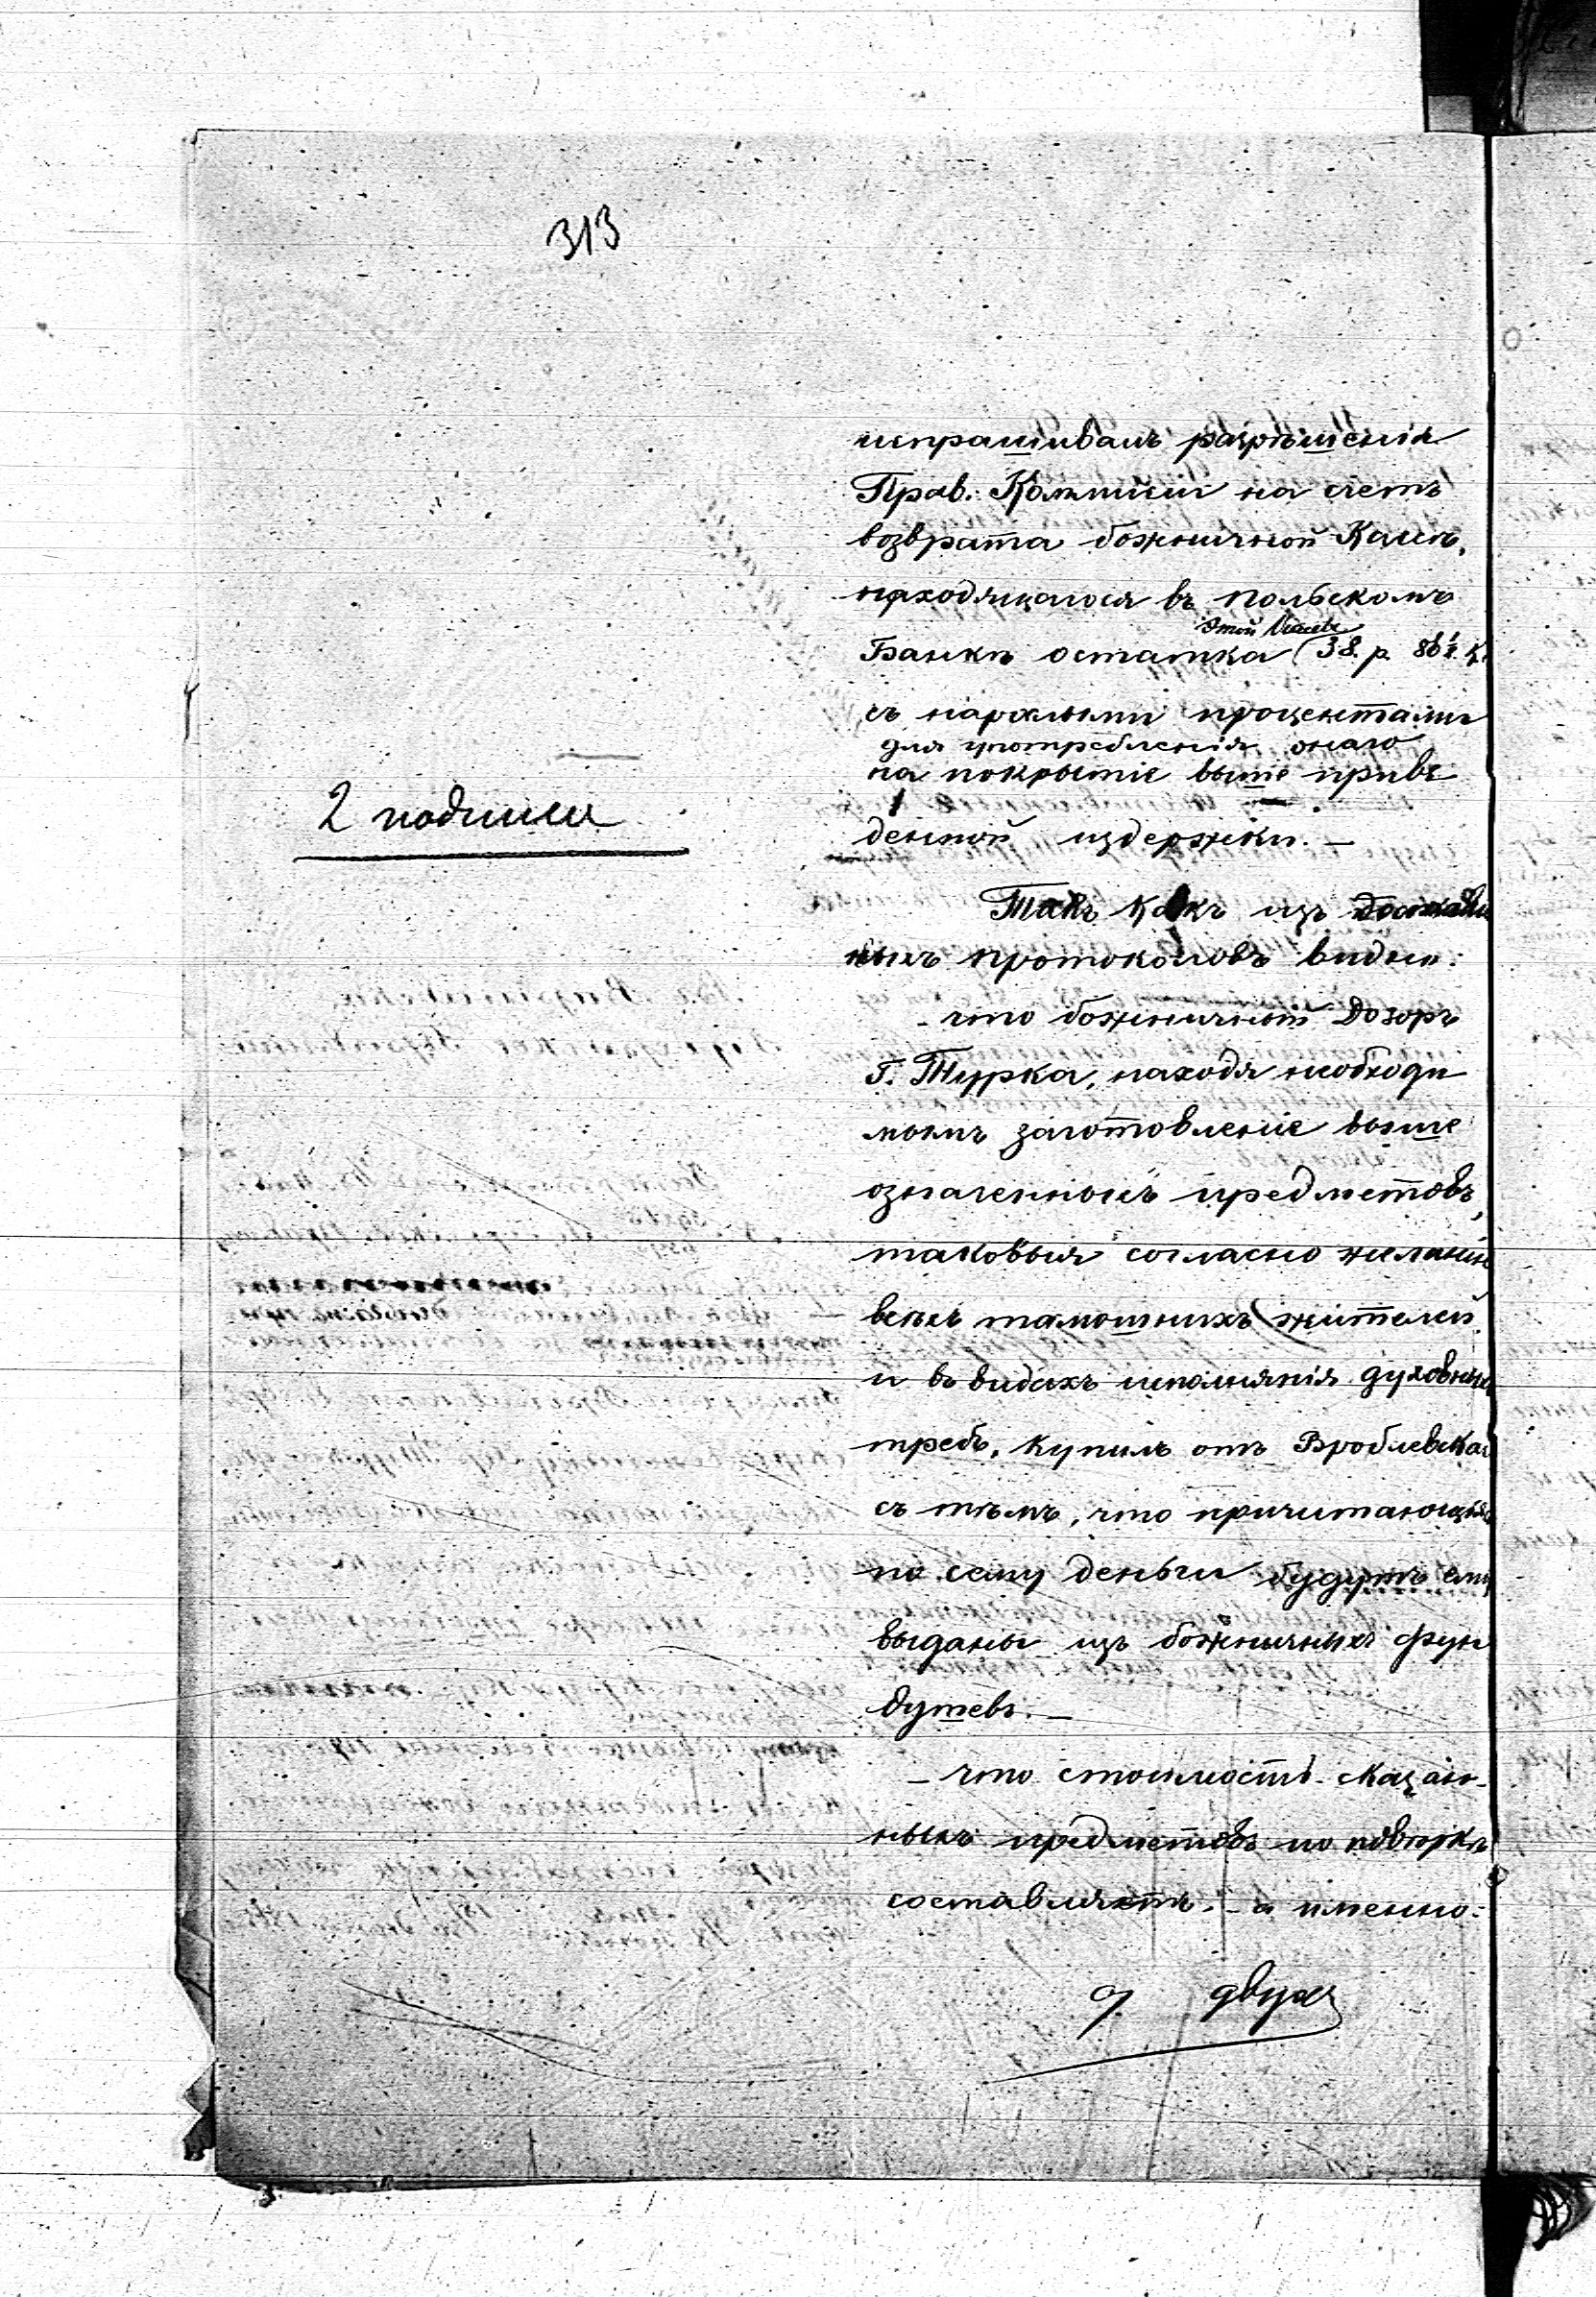 313
испрашивалъ разрѣшенія
Прав. Коммисіи на счетъ
возврата божничной Кассѣ,
находящагося въ польскомъ
этой Кассы
Банкѣ остатка 38. р. 86½ к.
съ нарослыми процентами
для употребленія онаго
на покрытіе выше приве
2 подписи
денной издержки. —
Такъ какъ изъ
ныхъ протоколовъ видно:
- что божничный Дозоръ
г. Турка, находя необходи
мымъ заготовленіе выше
означенныхъ предметовъ,
таковыя согласно желанію
всѣхъ тамошнихъ жителей
и въ видахъ исполненія духовныхъ
требъ, купилъ отъ Вроблевска
съ тѣмъ, что причитающіяся
по сему деньги будутъ ему
выданы изъ божничныхъ фун
душевъ. —
- что стоимость сказан-
ныхъ предметовъ по повѣркѣ
составляетъ: - а именно:
9. двухъ